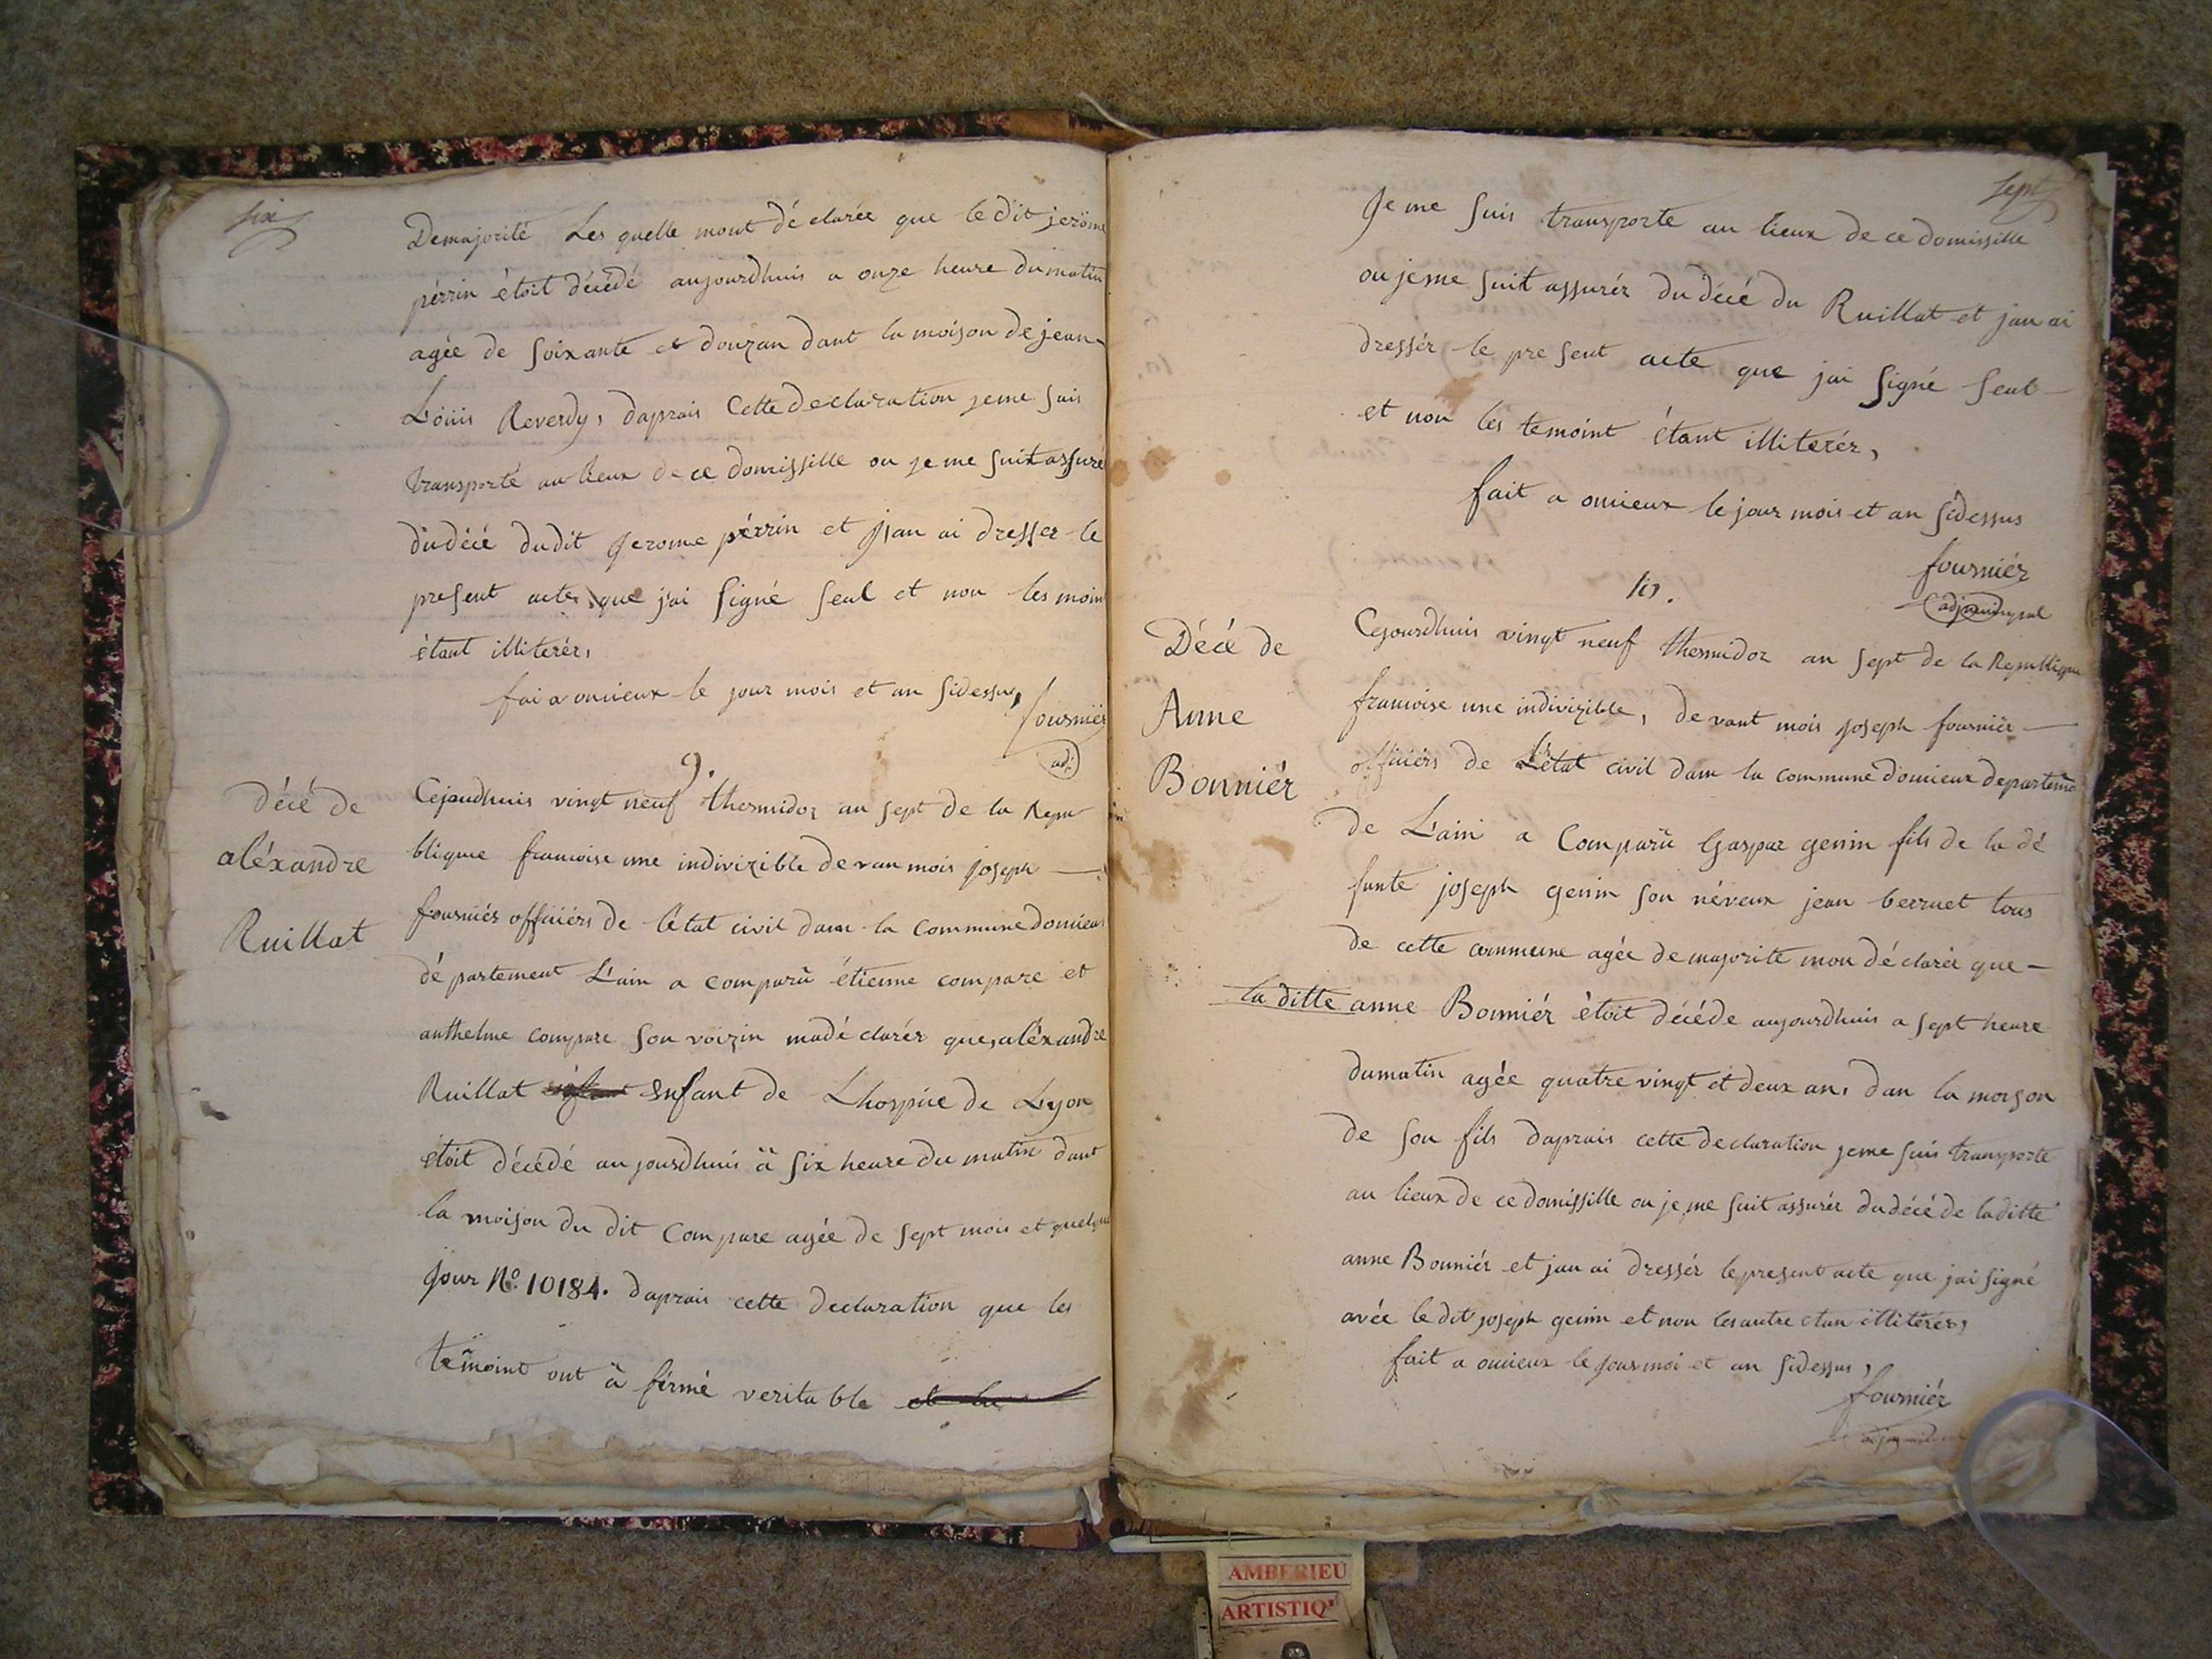 six
Demajorité Les quelle mont déclarée que le dit jerôme
pérrin étoit décédé aujourdhuis a onze heure dumatin
agée de soixante et douzan dant la moison de jean
Lóuis Reverdy, daprais Cette declaration jeme suis
transporté au lieux de ce domissille ou je me suit assuré
du décé dudit Jerome pérrin et jan ai dresser le
present acte que j'ai signé seul et non les moin
étant illiterér,
fai a onnieux le jour mois et an sidessus,
fourniér
adj
9.
décé de
aléxandre
Ruillat
Cejoudhuis vingt neuf thermidor an sept de la Repu
blique francoise une indivizible devan mois joseph
fourniér officiérs de l'état civil dans la Commune donnieux
département L'ain a comparü étienne compare et
anthelme compare son voizin madé clarér que, aléxandre
Ruillat Enfant de Lhospice de Lyon
étoit décédé aujourdhuis à six heure du matin dant
la moison du dit Compare agée de sept mois et quelque
Jour No. 10184. daprais cette declaration que les
témoint ont à férmé veritable et la
sept
Je me suis transporte au lieux de ce domissille
ou jeme suit assurér du décé du Ruillat et jan ai
dressér le pre sent acte que jai signé seul
et non les temoint étant illiterér,
fait a onnieux le jour mois et an sidessus
fourniér
adj municipal
10.
Décé de
Anne
Bonniér
Cejourdhuis vingt neuf thermidor an sept de la Republique
francoise une indivizible, devant mois joseph fourniér
officiérs de L'état civil dans la commune d'onnieux departeme
de L'ain a Comparü Gaspar genin fils de la dé
funte joseph genin son néveux jean berruet tous
de cette commune agée demajorité mon déclarée que
la ditte anne Bonniér étoit décéde aujourdhuis a sept heure
dumatin agée quatre vingt et deux an, dan la moison
de son fils daprais cette declaration jeme suis transporté
au lieux de ce domissille ou je me suit assurér dudécé de laditte
anne Bonniér et jan ai dressér lepresent acte que jai signé
avée le dit joseph genin et non les autre etan illitérér,
fait a onnieux le jour moi et an sidessus,
fourniér
AMBERIEU
ARTISTIQ'